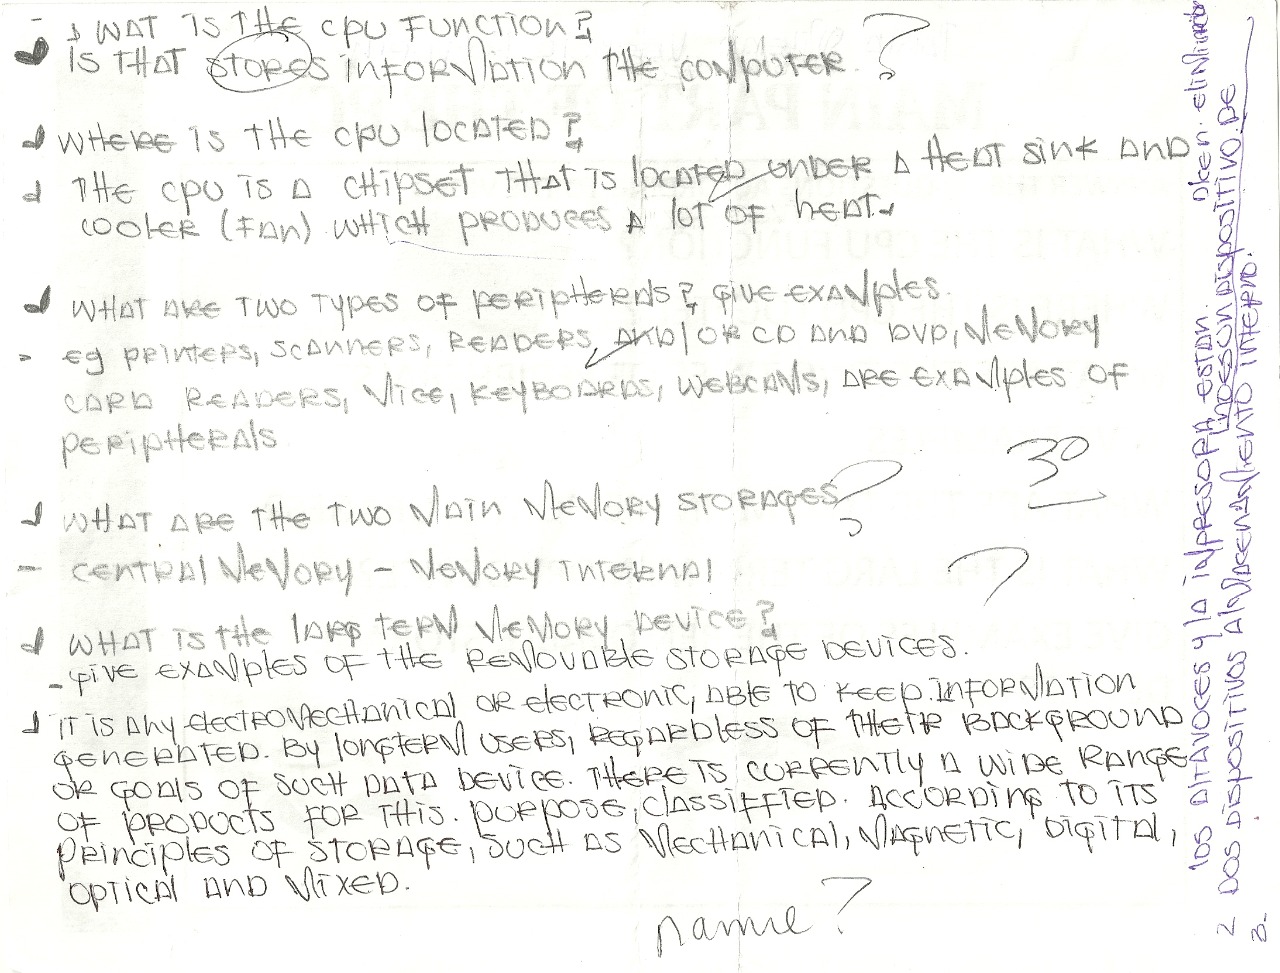 WAT IS THE CPU FUNCTION?
IS THAT STORES INFORMATION THE COMPUTER. ?
WHERE IS THE CPU LOCATED?
THE CPU IS A CHIPSET THAT IS LOCATED UNDER A HEAT SINK AND
COOLER (FAN) WHICH PRODUCES A LOT OF HEAT.
WHAT ARE TWO TYPES OF PERIPHERALS? GIVE EXAMPLES.
EG PRINTERS, SCANNERS, READERS, AND/OR CD AND DVD, MEMORY
CARD READERS, MICE, KEYBOARDS, WEBCAMS, ARE EXAMPLES OF
PERIPHERALS
3º
WHAT ARE THE TWO MAIN MEMORY STORAGES?
- CENTRAL MEMORY - MEMORY INTERNAL
?
WHAT IS THE LARG TERM MEMORY DEVICE?
- GIVE EXAMPLES OF THE REMOVABLE STORAGE DEVICES.
IT IS ANY ELECTROMECHANICAL OR ELECTRONIC, ABLE TO KEEP INFORMATION
GENERATED. BY LONGTERM USERS, REGARDLESS OF THEIR BACKGROUND
OR GOALS OF SUCH DATA DEVICE. THERE IS CURRENTLY A WIDE RANGE
OF PRODUCTS FOR THIS. PURPOSE, CLASSIFFIED. ACCORDING TO ITS
PRINCIPLES OF STORAGE, SUCH AS MECHANICAL, MAGNETIC, DIGITAL,
OPTICAL AND MIXED.
name?
LOS ALTAVOCES Y LA IMPRESORA ESTAN.
2 DOS DISPOSITIVOS ALMACENAMIENTO INTERNO.
NO ES UN DISPOSITIVO. DE
3.